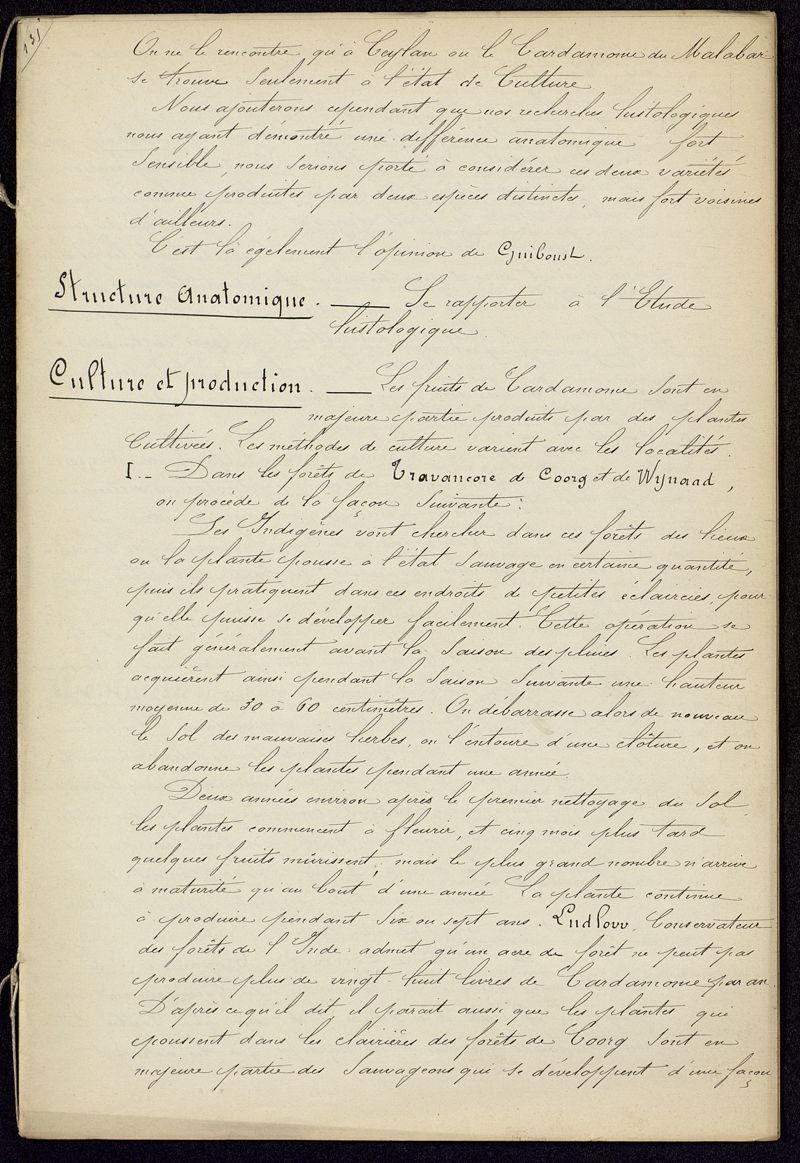 131
On ne le rencontre qu'à Ceylan ou le Cardamome du Malabar
se trouve seulement à l'état de Culture
Nous ajouterons cependant que nos recherches histologiques
nous ayant démontré une différence anatomique fort
sensible, nous serions porté à considérer ces deux variétés
comme produites par deux espèces distinctes, mais fort voisines
d'ailleurs.
C'est là également l'opinion de Guiboust.
Structure Anatomique. — Se rapporter à l'Etude
histologique.
Culture et production. — Les fruits de Cardamome sont en
majeure partie produits par des plantes
Cultivées. Les méthodes de culture varient avec les localités.
I.- Dans les forêts de Travancore de Coorg et de Wynaad,
on procède de la façon suivante:
Les Indigènes vont chercher dans ces forêts des lieux
ou la plante pousse à l'état sauvage en certaine quantité,
puis ils pratiquent dans ces endroits de petites éclaircies, pour
qu'elle puisse se développer facilement. Cette opération se
fait généralement avant la saison des pluies. Les plantes
acquièrent ainsi pendant la saison suivante une hauteur
moyenne de 30 à 60 centimètres. On débarrasse alors de nouveau
le sol des mauvaises herbes, on l'entoure d'une clôture, et on
abandonne les plantes pendant une année.
Deux années environ après le premier nettoyage du sol,
les plantes commencent à fleurir, et cinq mois plus tard
quelques fruits mûrissent; mais le plus grand nombre n'arrive
à maturité qu'au bout d'une année. La plante continue
à produire pendant six ou sept ans. Ludlow, Conservateur
des forêts de l'Inde admet qu'un acre de forêt ne peut pas
produire plus de vingt-huit livres de Cardamome par an.
D'après ce qu'il dit, il parait aussi que les plantes qui
poussent dans les clairières des forêts de Coorg sont en
majeure partie des sauvageons qui se développent d'une façon